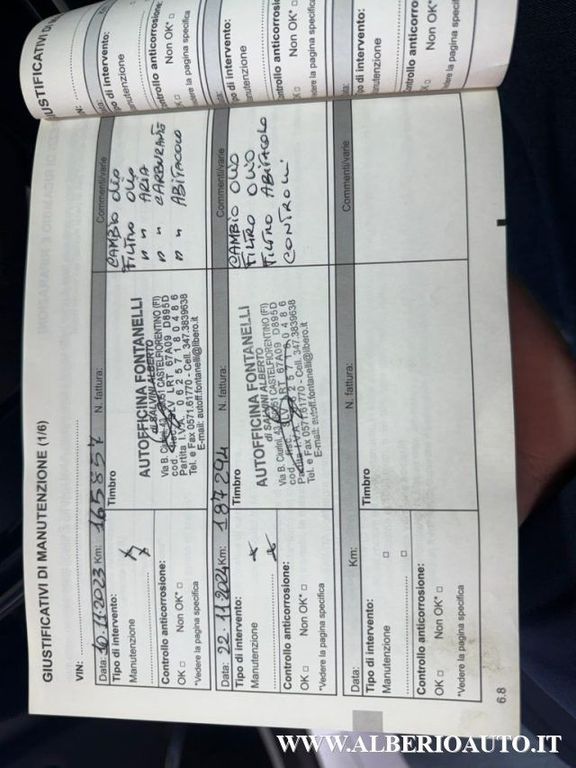 GIUSTIFICATIVI DI MANUTENZIONE (1/6)
VIN:
Data: 10.11.2023 Km: 165857 N. fattura: Commenti/varie
Tipo di intervento:
Manutenzione
Timbro
AUTOFFICINA FONTANELLI
di SALVINI ALBERTO
Via B. Cadini, 43 CASTELFIORENTINO (FI)
cod. LRT 67A09 D895D
Partita 06257180486
Tel. e Fax 0571.61770 - Cell. 347.3839638
E-mail: autoff.fontanelli@libero.it
CAMBIO OLIO
FILTRO OLIO
" " ARIA
" " CARBURANTE
" " ABITACOLO
Controllo anticorrosione:
OK □ Non OK* □
*Vedere la pagina specifica
Data: 22.11.2024 Km: 187294 N. fattura: Commenti/varie
Tipo di intervento:
Manutenzione
Timbro
AUTOFFICINA FONTANELLI
di SALVINI ALBERTO
Via B. Cadini, 43 CASTELFIORENTINO (FI)
cod. LRT 67A09 D895D
Partita IVA
Tel. e Fax 0571.61770 - Cell. 347.3839638
E-mail: autoff.fontanelli@libero.it
CAMBIO OLIO
FILTRO OLIO
FILTRO ABITACOLO
CONTROLLI
Controllo anticorrosione:
OK □ Non OK* □
*Vedere la pagina specifica
Data: Km: N. fattura: Commenti/varie
Tipo di intervento:
Manutenzione □
□
Timbro
Controllo anticorrosione:
OK □ Non OK* □
*Vedere la pagina specifica
6.8
GIUSTIFICATIVI DI
VIN:
Tipo di intervento:
Manutenzione
Controllo anticorrosione:
Non OK* □
Vedere la pagina specifica
Tipo di intervento:
Manutenzione
Controllo anticorrosione:
Non OK* □
Vedere la pagina specifica
Data:
Tipo di intervento:
Manutenzione
Controllo anticorrosione:
Non OK*
*Vedere la pagina specifica
WWW.ALBERIOAUTO.IT